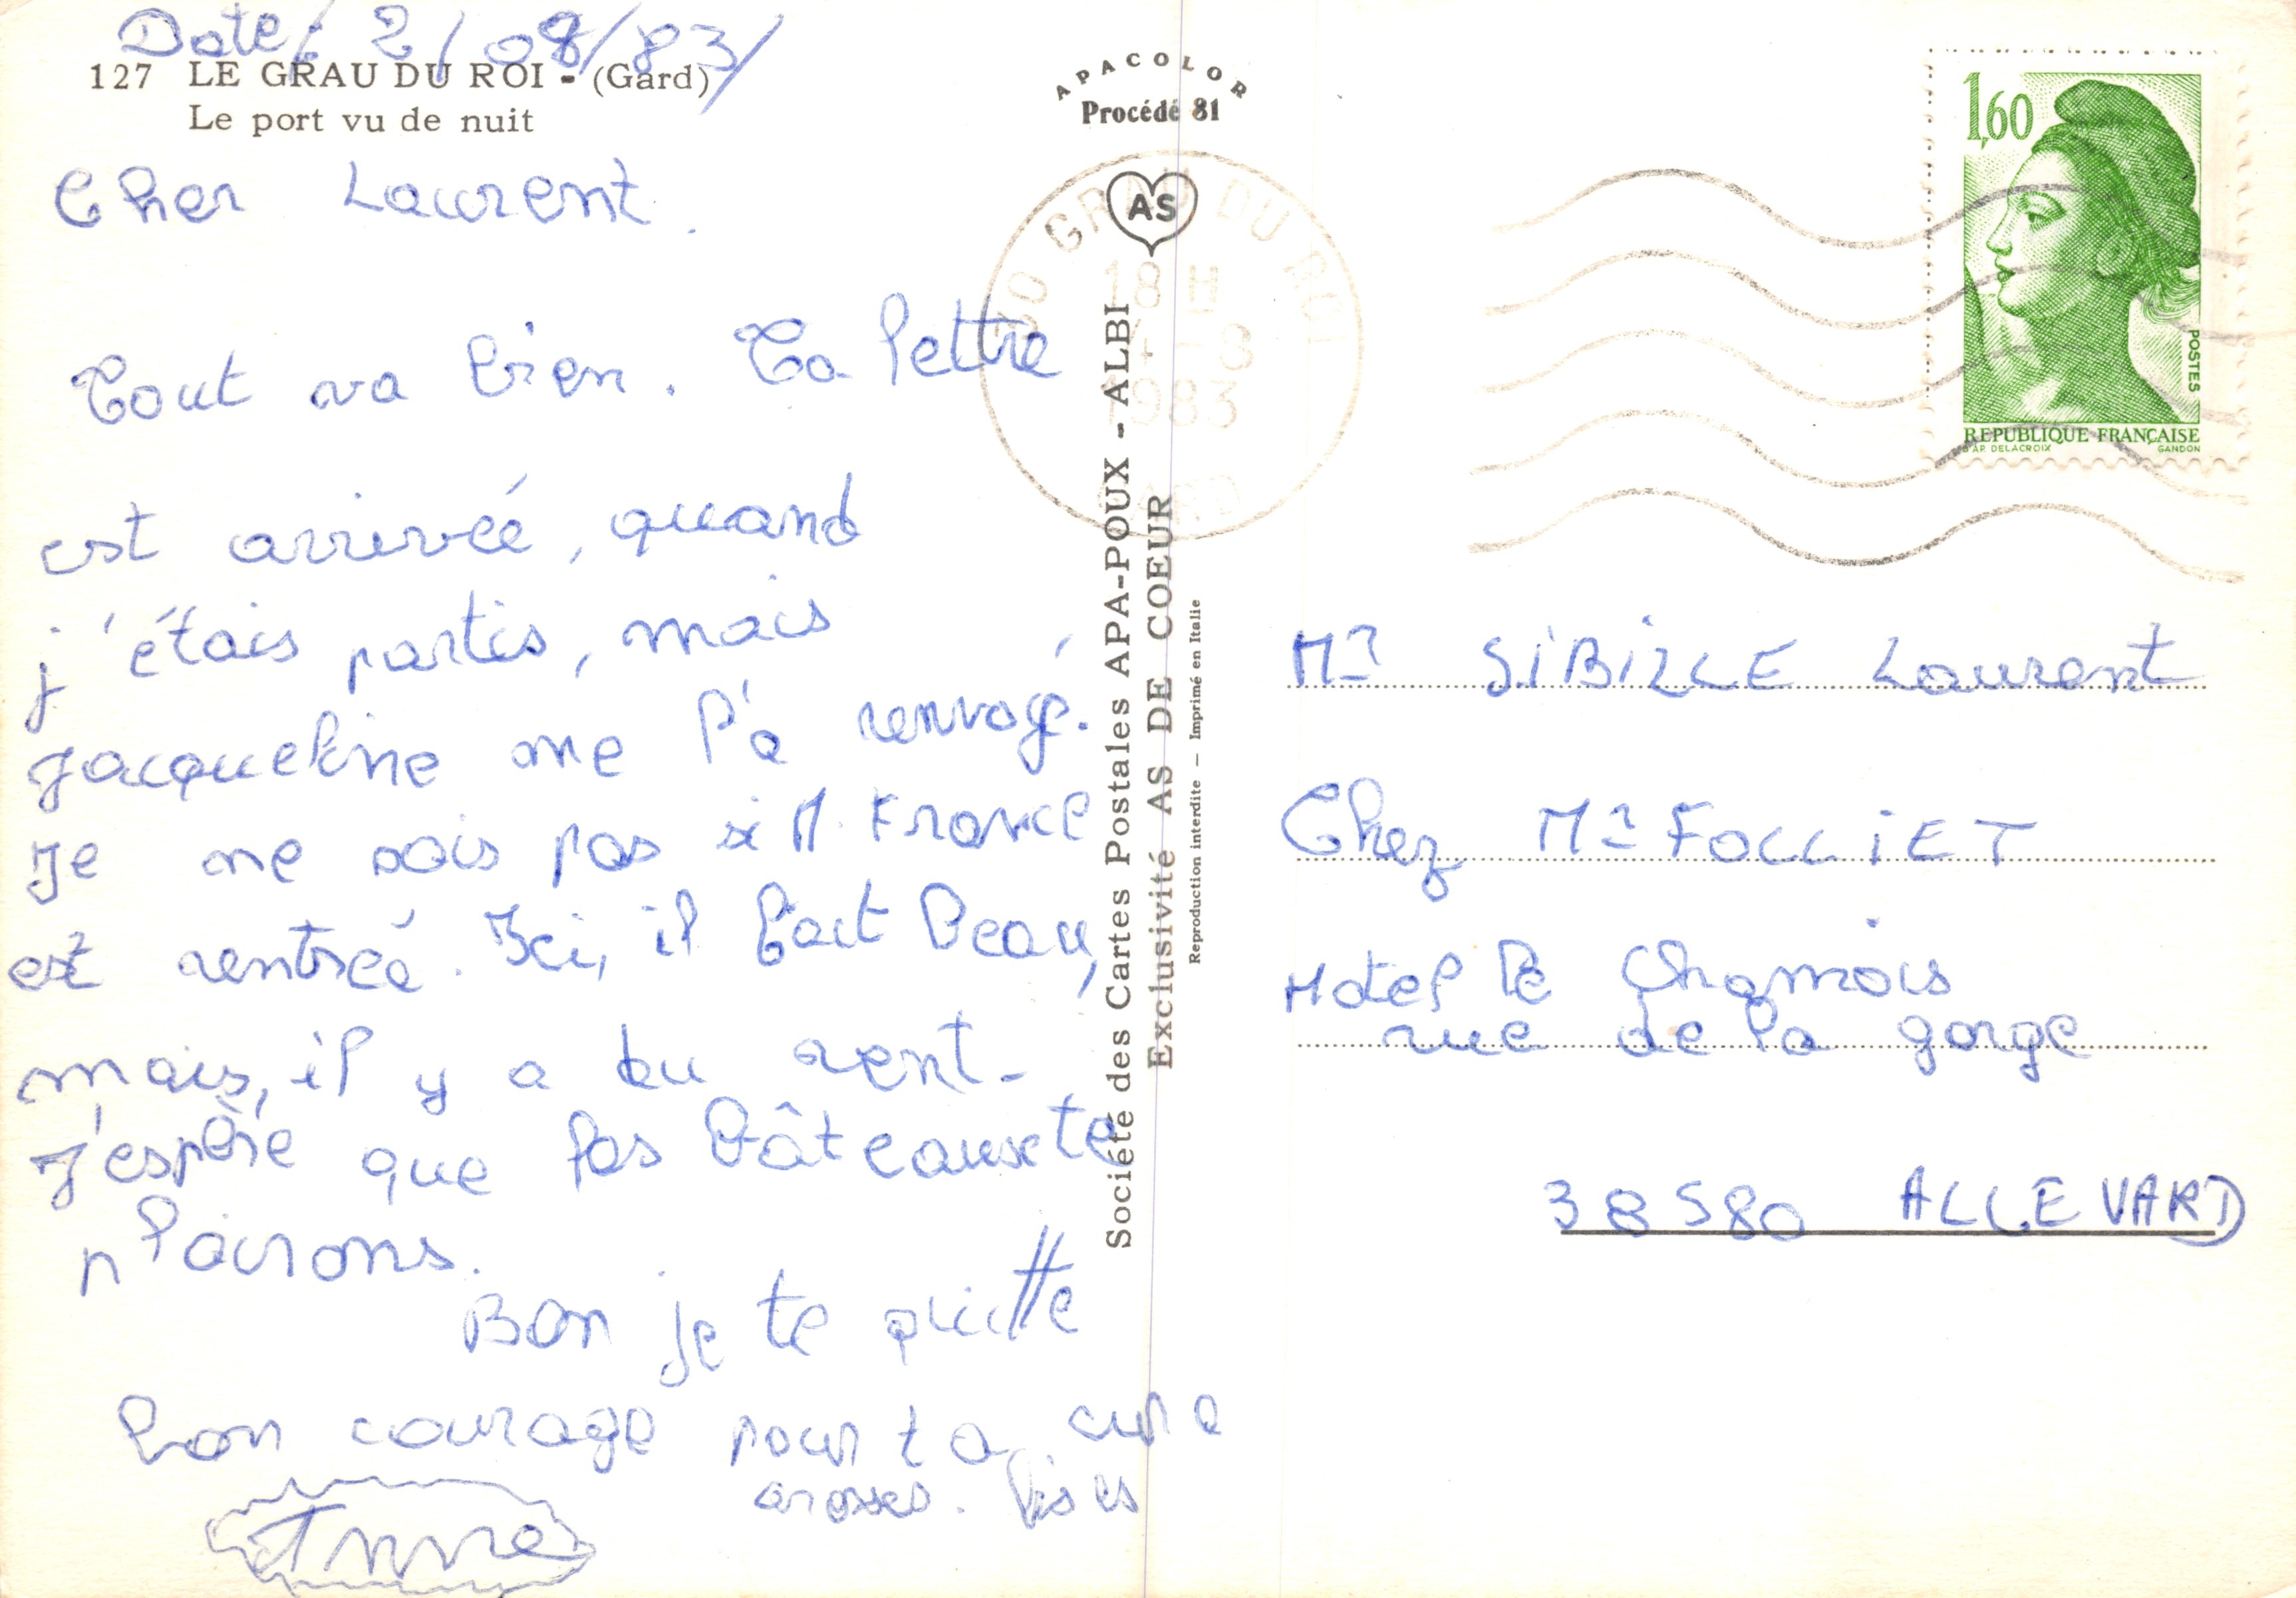 Date: 2/08/83/
127 LE GRAU DU ROI - (Gard)
Le port vu de nuit
Cher Laurent.
Tout va bien. Ta lettre
est arrivéé, quand
j'étais partis, mais
Jacqueline me l'a renvoyé.
Je ne sais pas si M. France
est rentréé. Ici, il fait beau,
mais, il y a du vent-
J'espère que las bâteaux te
plairons.
Bon je te quitte
bon courage pour ta cure
grosses. bises
Anne
APACOLOR
Procédé 81
AS
Société des Cartes Postales APA-POUX - ALBI
Exclusivité AS DE COEUR
Reproduction interdite — Imprimé en Italie
30 GRAU DU ROI
18 H
-8
1983
GARD
1,60
POSTES
REPUBLIQUE FRANÇAISE
D'AP. DELACROIX GANDON
Mr SiBiLLE Laurent
Chez Mr FOLLiET
Hotel le Chamois
rue de la gorge
38580 ALLEVARD